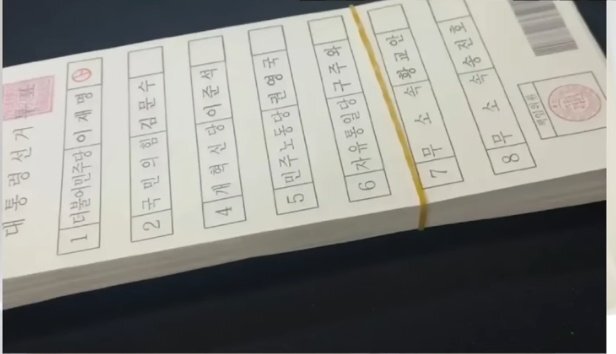 대통령선거투표
1 더불어민주당 이재명
2 국민의힘 김문수
4 개혁신당 이준석
5 민주노동당 권영국
6 자유통일당 구주와
7 무소속 황교안
8 무소속 송진호